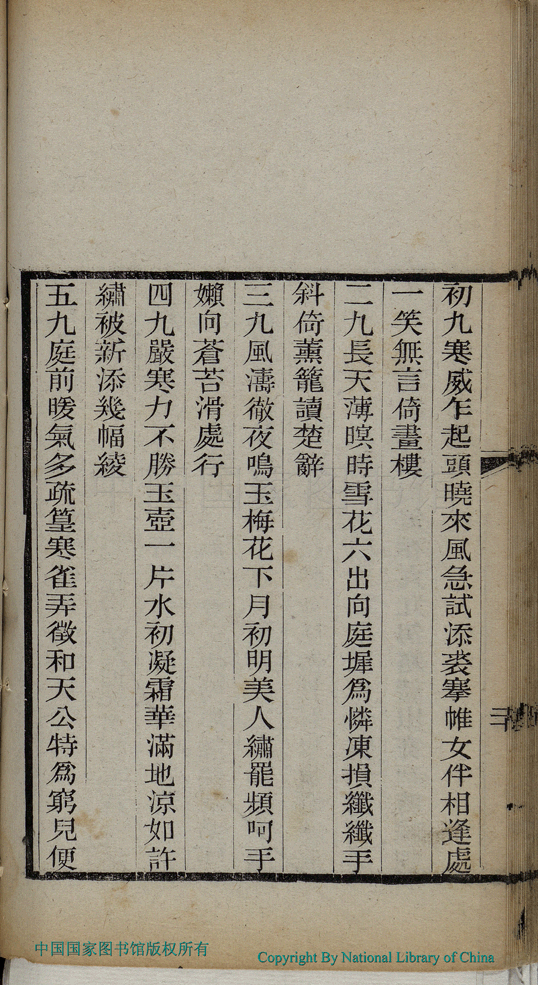 初九寒威乍起頭曉來風急試添裘搴帷女伴相逢處
一笑無言倚畫樓
二九長天薄暝時雪花六出向庭墀爲憐凍損纖纖手
斜倚薰籠讀楚辭
三九風濤徹夜鳴玉梅花下月初明美人繡罷頻呵手
嬾向蒼苔滑處行
四九嚴寒力不勝玉壺一片水初凝霜華滿地涼如許
繡被新添幾幅綾
五九庭前暖氣多疏篁寒雀弄徵和天公特爲窮兒便
中国国家图书馆版权所有
Copyright By National Library of China